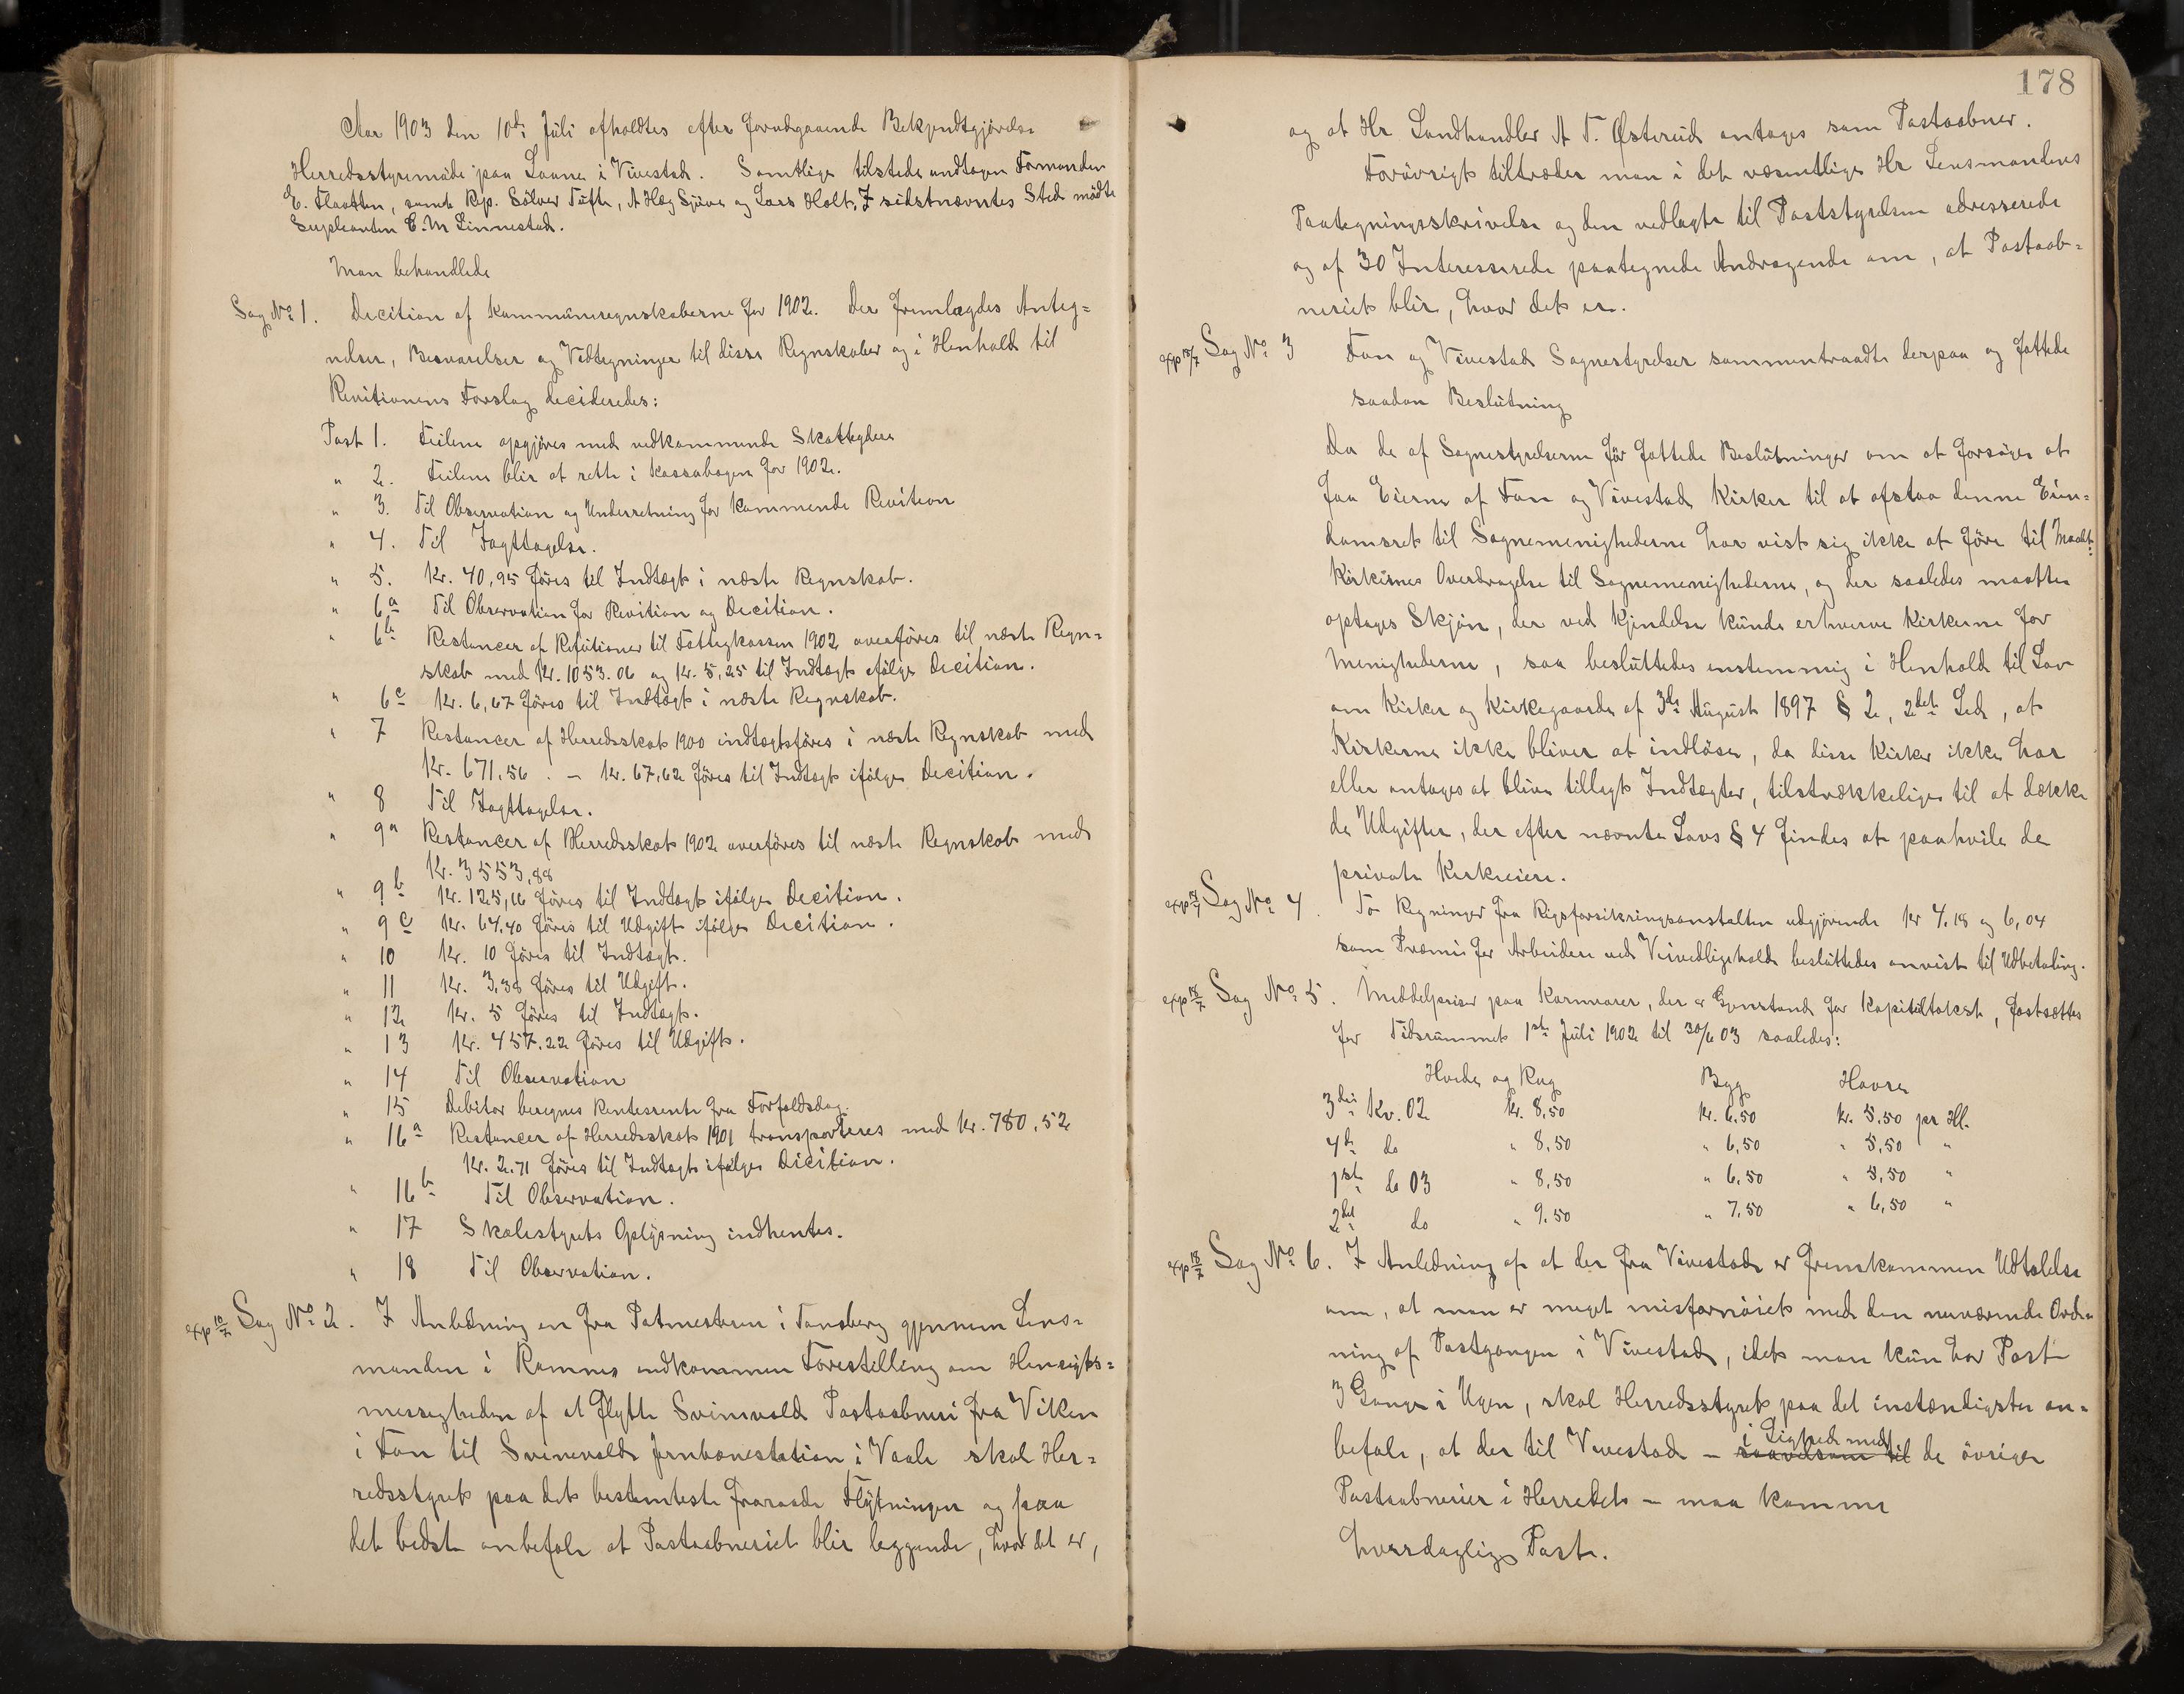 Aar 1903 den 10de Juli afholdtes efter forudgaaende Bekjendtgjörelse
Herredsstyremöde paa Laane i Vivestad. Samtlige tilstede undtagen Formanden
E. Flaatten, samt Rep. Sölver Tufte, A Hæg Sjöve og Lars Holt. I sidstnævntes Sted mödte
Supleanten C. M Linnestad.
Man behandlede
Sag No 1. Decition af Kommuneregnskaberne for 1902. Der fremlagdes Anteg=
nelser, Besvarelser og Vedtegninger til disse Regnskaber og i Henhold til
Revitionens Forslag decideredes:
Post 1. Feilene opgjöres med vedkommende Skatteydere
" 2. Feilene blir at rette i Kassabogen for 1902.
" 3. Til Observation og Underretning for kommende Revition
" 4. Til Iagttagelse.
" 5. Kr. 40,95 föres til Indtægt i næste Regnskab.
" 6a Til Observation for Revition og Decition.
" 6b Restancer af Refutioner til Fattigkassen 1902 overföres til næste Regn=
skab med Kr. 1053.06 og Kr. 5,25 til Indtægt ifölge Decition.
" 6c Kr. 6,67 föres til Indtægt i næste Regnskab.
" 7 Restancer af Herredsskat 1900 indtægtsföres i næste Regnskab med
Kr. 671,56. – Kr. 67,62 föres til Indtægt ifölge Decition.
" 8 Til Iagttagelse.
" 9a Restancer af Herredsskat 1902 overföres til næste Regnskab med
Kr. 3553,88
" 9b Kr. 125,16 föres til Indtægt ifölge Decition.
" 9c Kr. 64.40 föres til Udgift ifölge Decition.
" 10 Kr. 10 föres til Indtægt.
" 11 Kr. 3.38 föres til Udgift.
" 12 Kr. 5 föres til Indtægt.
" 13 Kr. 457.22 föres til Udgift.
" 14 Til Observation
" 15 Debitor beregnes Rentesrente fra Forfaldsdag.
" 16a Restancer af Herredsskat 1901 transporteres med Kr. 780,52
Kr. 2.71 föres til Indtægt ifölge Dicition.
" 16b Til Observation.
" 17 Skolestyrets Oplysning indhentes.
" 18 Til Observation.
exp 18/7 Sag No 2. I Anledning en fra Postmesteren i Tönsberg gjennem Lens=
manden i Ramnes indkommen Forestilling om Hensigts=
messigheden af at flytte Svinevold Postaabneri fra Viken
i Fon til Svinevold Jernbanestation i Vaale skal Her=
redsstyret paa det bestemteste fraraade Flytningen og paa
det bedste anbefale at Postaabneriet blir liggende, hvor det er,
178
og at Hr Landhandler A T. Østereid antages som Postaabner.
Forövrigt tiltræder man i det væsentlige Hr Lensmandens
Paategningsskrivelse og den vedlagte til Poststyrelsen adresserede
og af 30 Interesserede paategnede Andragende om, at Postaab=
neriet blir, hvor det er.
exp 18/7 Sag No 3 Fon og Vivestad Sognestyrelser sammentraadte derpaa og fattede
saadan Beslutning
Da de af Sognestyrelserne för fattede Beslutninger om at forsöge at
faa Eierne af Fon og Vivestad Kirker til at afstaa denne Eien=
domsret til Sognemenighederne har vist sig ikke at före til Maalet:
Kirkernes Overdragelse til Sognemenighederne, og der saaledes maatte
optages Skjön, der ved Kjendelse kunde erhverve Kirkerne for
Menighederne, saa besluttedes enstemmig i Henhold til Lov
om Kirker og Kirkegaarde af 3de August 1897 § 2, 2det Led, at
Kirkerne ikke bliver at indlöse, da disse Kirker ikke har
eller antages at blive tillagt Indtægter, tilstrækkelige til at dække
de Udgifter, der efter nævnte Lovs § 4 findes at paahvile de
private Kirkeeiere.
exp 18/7 Sag No 4. To Regninger fra Rigsforsikringsanstalten udgjörende Kr 4.18 og 6,04
som Præmie for Arbeidere ved Veivedligehold besluttedes anvist til Udbetaling.
exp 18/7 Sag No 5. Middelpriser paa Kornvarer, der er Gjenstand for Kapiteltakst, fastsættes
for Tidsrummet 1ste Juli 1902 til 30/6 03 saaledes:
Hvede og Rug Byg Havre
3die Kv. 02 Kr. 8,50 Kr. 6.50 Kr. 5.50 pr Hl.
4de do " 8,50 " 6,50 " 5,50 "
1ste do 03 " 8,50 " 6,50 " 5,50 "
2det do " 9.50 " 7,50 " 6,50 "
exp 18/7 Sag No 6. I Anledning af at der fra Vivestad er fremkommen Udtalelse
om, at man er meget misfornöiet med den nuværende Ord=
ning af Postgangen i Vivestad, idet man kun har Post
3 Gange i Ugen, skal Herredsstyret paa det instændigste an=
befale, at der til Vivestad – saavelsom til i Lighed med de övrige
Postaabnerier i Herredet – maa komme
hverdaglig Post.